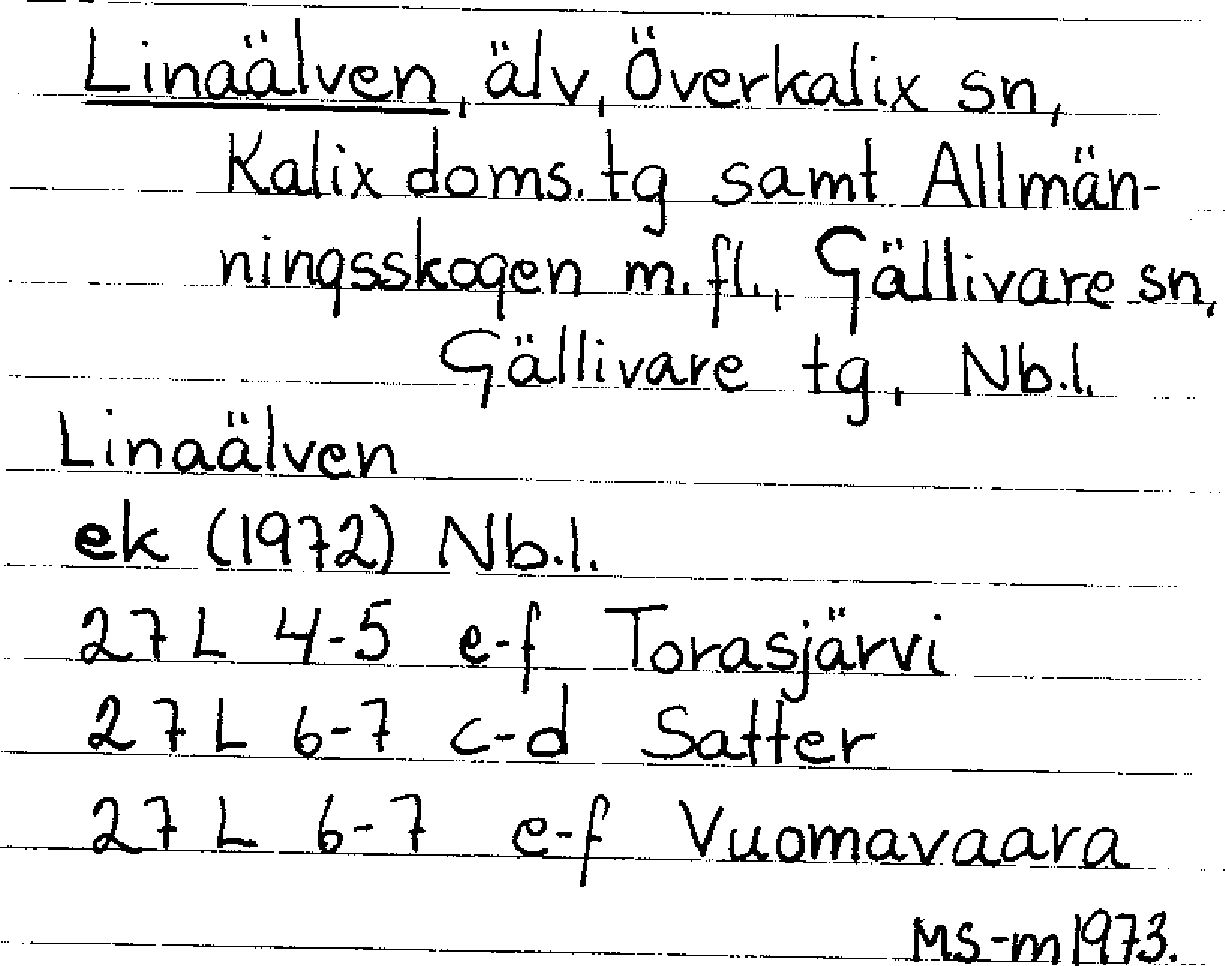 Linaälven, älv, Överkalix sn,
Kalix doms. tg samt Allmän-
ningsskogen m. fl., Gällivare sn,
Gällivare tg, Nb.l.
Linaälven
ek (1972) Nb.l.
27 L 4-5 e-f Torasjärvi
27 L 6-7 c-d Satter
27 L 6-7 e-f Vuomavaara
MS-m 1973.